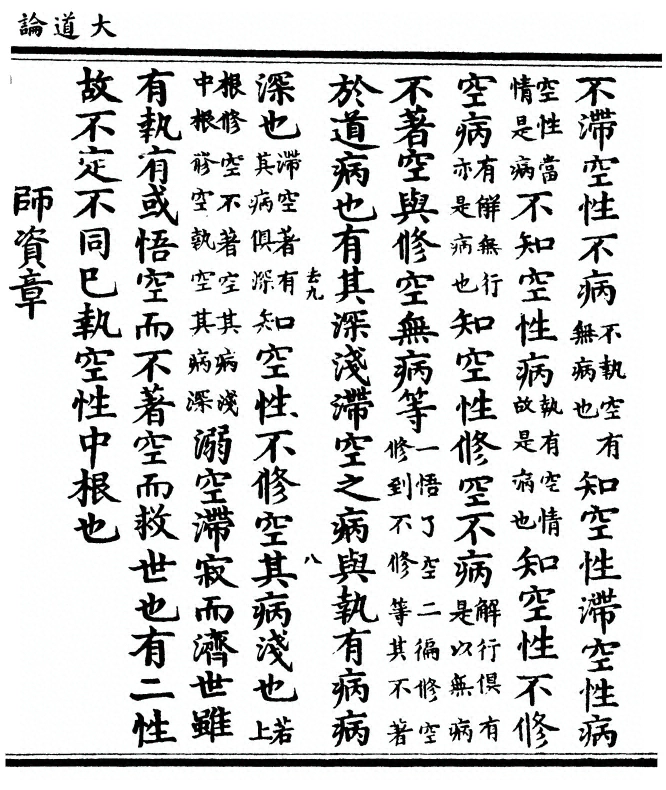 大道論
不滯空性不病不執空有無病也知空性滯空性病
空性當情是病不知空性病執有空情故是病也知空性不修
空病有解無行亦是病也知空性修空不病解行俱有是以無病
不著空與修空無病等一悟了空二徧修空修到不修等其不著
於道病也有其深淺滯空之病與執有病病
去九 八
深也滯空著有其病俱深知空性不修空其病淺也若上
根修空不著空其病淺中根修空執空其病深溺空滯寂而濟世雖
有執有或悟空而不著空而救世也有二性
故不定不同巳執空性中根也
師資章